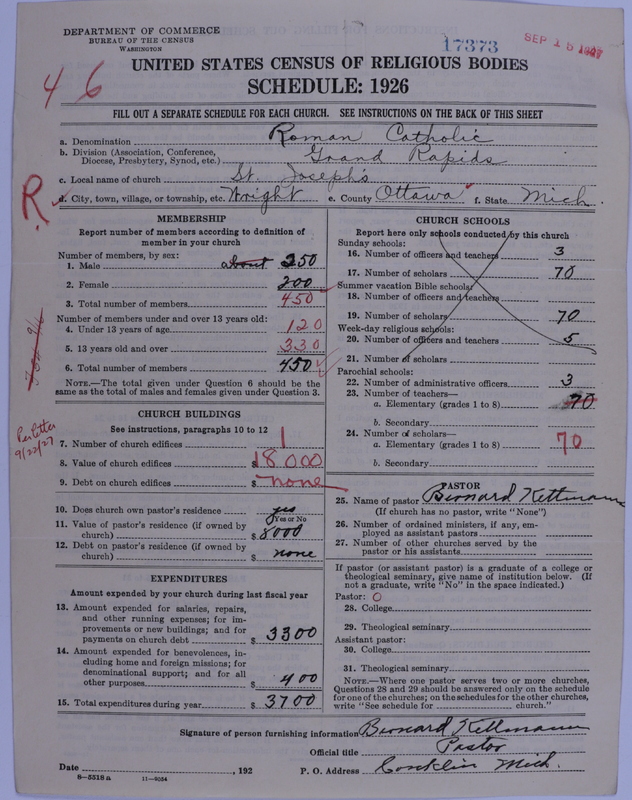 DEPARTMENT OF COMMERCE
BUREAU OF THE CENSUS
WASHINGTON
17373
SEP 15 1927
4 6
UNITED STATES CENSUS OF RELIGIOUS BODIES
SCHEDULE: 1926
FILL OUT A SEPARATE SCHEDULE FOR EACH CHURCH. SEE INSTRUCTIONS ON THE BACK OF THIS SHEET
a. Denomination Roman Catholic
b. Division (Association, Conference, Diocese, Presbytery, Synod, etc.) Grand Rapids
c. Local name of church St. Joseph's
R
d. City, town, village, or township, etc. Wright e. County Ottawa f. State Mich.
MEMBERSHIP
Report number of members according to definition of
member in your church
Number of members, by sex:
1. Male about 250
2. Female 200
3. Total number of members 450
Number of members under and over 13 years old:
4. Under 13 years of age 120
5. 13 years old and over 330
6. Total number of members 450
NOTE.—The total given under Question 6 should be the
same as the total of males and females given under Question 3.
Per letter
9/22/27
CHURCH BUILDINGS
See instructions, paragraphs 10 to 12
7. Number of church edifices 1
8. Value of church edifices $ 18000
9. Debt on church edifices $ none
10. Does church own pastor's residence? yes
(Yes or No
11. Value of pastor's residence (if owned by
church) $ 8000
12. Debt on pastor's residence (if owned by
church) $ none
EXPENDITURES
Amount expended by your church during last fiscal year
13. Amount expended for salaries, repairs,
and other running expenses; for im-
provements or new buildings; and for
payments on church debt $ 3300
14. Amount expended for benevolences, in-
cluding home and foreign missions; for
denominational support; and for all
other purposes $ 400
15. Total expenditures during year $ 3700
CHURCH SCHOOLS
Report here only schools conducted by this church
Sunday schools:
16. Number of officers and teachers 3
17. Number of scholars 70
Summer vacation Bible schools:
18. Number of officers and teachers
19. Number of scholars 70
Week-day religious schools:
20. Number of officers and teachers 5
21. Number of scholars
Parochial schools:
22. Number of administrative officers 3
23. Number of teachers—
a. Elementary (grades 1 to 8) 70
b. Secondary
24. Number of scholars—
a. Elementary (grades 1 to 8) 70
b. Secondary
PASTOR
25. Name of pastor Bernard Kettmann
(If church has no pastor, write "None")
26. Number of ordained ministers, if any, em-
ployed as assistant pastors
27. Number of other churches served by the
pastor or his assistants
If pastor (or assistant pastor) is a graduate of a college or
theological seminary, give name of institution below. (If
not a graduate, write "No" in the space indicated.)
Pastor: O
28. College
29. Theological seminary
Assistant pastor:
30. College
31. Theological seminary
NOTE.—Where one pastor serves two or more churches,
Questions 28 and 29 should be answered only on the schedule
for one of the churches; on the schedules for the other churches,
write "See schedule for church."
Signature of person furnishing information Bernard Kettmann
Official title Pastor
Date , 192 P. O. Address Conklin Mich.
8—5518 a 11—9034